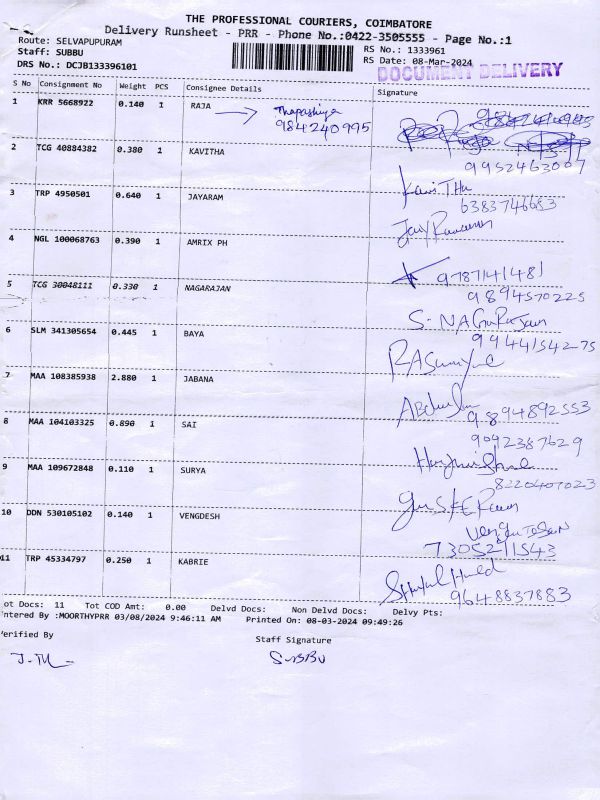 THE PROFESSIONAL COURIERS, COIMBATORE
Delivery Runsheet - PRR - Phone No.:0422-3505555 - Page No.:1
Route: SELVAPUPURAM
Staff: SUBBU
DRS No.: DCJB133396101
RS No.: 1333961
RS Date: 08-Mar-2024
DOCUMENT DELIVERY
S No Consignment No Weight PCS Consignee Details Signature
1 KRR 5668922 0.140 1 RAJA
984240995
2 TCG 40884382 0.380 1 KAVITHA
9952463007
3 TRP 4950501 0.640 1 JAYARAM
6383746653
4 NGL 100068763 0.390 1 AMRIX PH
9787141481
5 TCG 30048111 0.330 1 NAGARAJAN
9894570225
6 SLM 341305654 0.445 1 BAYA
9944154275
7 MAA 108385938 2.880 1 JABANA
9894892553
8 MAA 104103325 0.890 1 SAI
9092387629
9 MAA 109672848 0.110 1 SURYA
8220407023
10 DDN 530105102 0.140 1 VENGDESH
7305211543
11 TRP 45334797 0.250 1 KABRIE
9648837883
ot Docs: 11 Tot COD Amt: 0.00 Delvd Docs: Non Delvd Docs: Delvy Pts:
ntered By :MOORTHYPRR 03/08/2024 9:46:11 AM Printed On: 08-03-2024 09:49:26
erified By Staff Signature
SUBBU